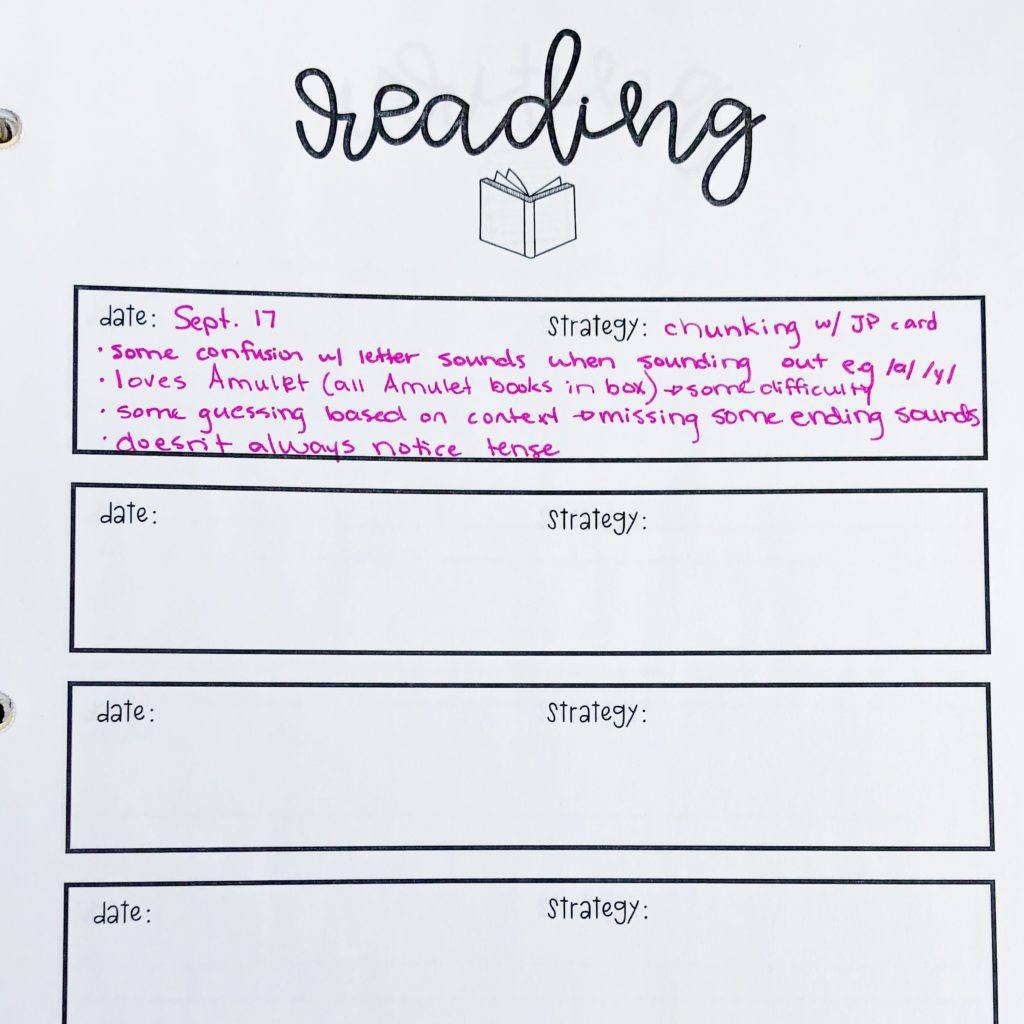 reading
date: Sept. 17 strategy: chunking w/ JP card
• some confusion w/ letter sounds when sounding out eg /a/ /y/
• loves Amulet (all Amulet books in box) → some difficulty
• some guessing based on context → missing some ending sounds
• doesn't always notice tense
date: strategy:
date: strategy:
date: strategy: